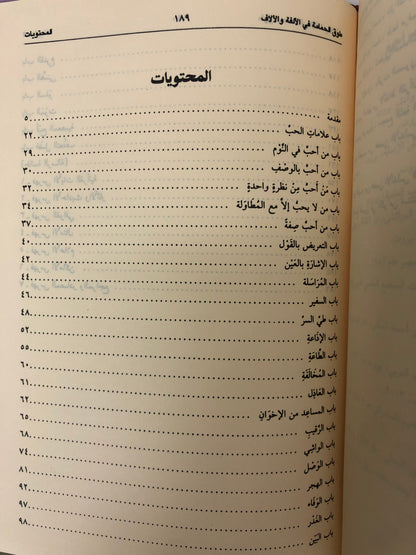 طوق الحمامة في الألفة والألاف ١٨٩ المحتويات
المحتويات
مقدمة ٥
باب علامات الحبّ ٢٢
باب من أحبَّ في النَّوْم ٢٩
باب من أحبَّ بالوصْفِ ٣٠
باب مَنْ أَحبَّ مِنْ نظرةٍ واحدةٍ ٣٢
باب من لا يحبُّ إلاَّ مع المُطَاوَلة ٣٤
باب من أحبَّ صِفةً ٣٧
باب التعريض بالقَوْل ٤٠
باب الإشارَةِ بالعَيْن ٤٢
باب المُرَاسَلة ٤٤
باب السفير ٤٦
باب طيِّ السرِّ ٤٨
باب الإذَاعَةِ ٥٢
باب الطَّاعَةِ ٥٥
باب المُخَالَفَةِ ٦٠
باب العَاذِل ٦١
باب المساعِد من الإخوَانِ ٦٢
باب الرَّقِيبِ ٦٥
باب الوَاشي ٦٨
باب الوَصْل ٧٤
باب الهجر ٨١
باب الوَفَاء ٩٢
باب الغَدْر ٩٧
باب البَيْن ٩٨